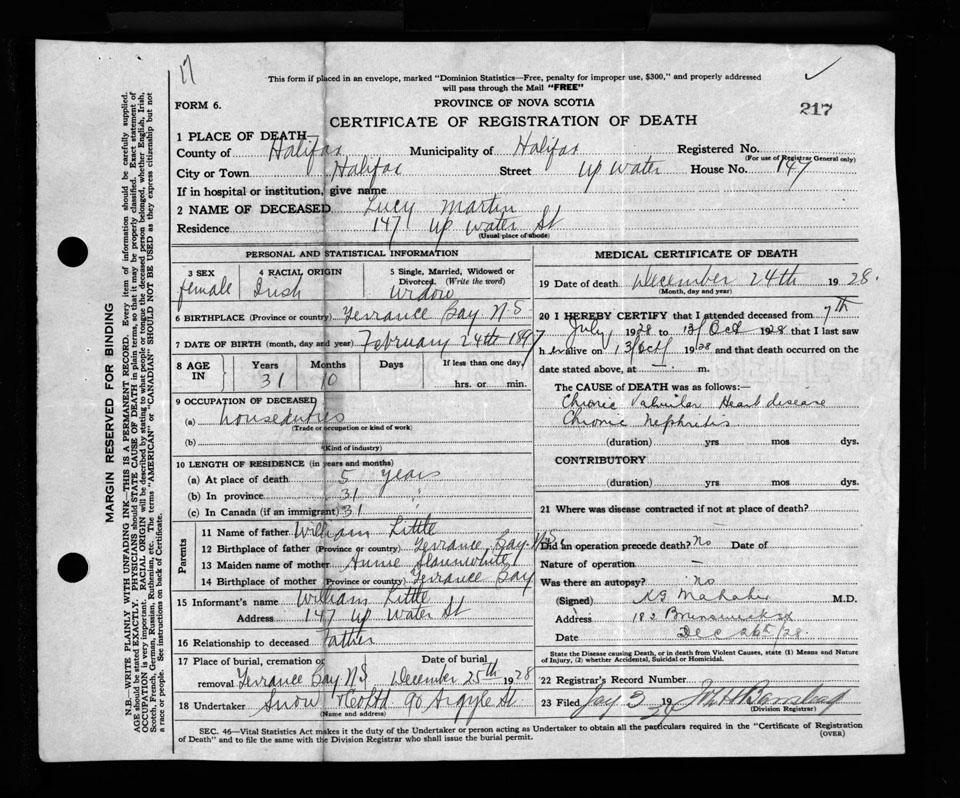 17
This form if placed in an envelope, marked "Dominion Statistics—Free, penalty for improper use, $300," and properly addressed
will pass through the Mail "FREE"
FORM 6.
PROVINCE OF NOVA SCOTIA
217
CERTIFICATE OF REGISTRATION OF DEATH
1 PLACE OF DEATH
County of Halifax Municipality of Halifax Registered No.
(For use of Registrar General only)
City or Town Halifax Street Up Water House No. 147
If in hospital or institution, give name
2 NAME OF DECEASED Lucy Martin
Residence 147 Up Water St
(Usual place of abode)
PERSONAL AND STATISTICAL INFORMATION
3 SEX 4 RACIAL ORIGIN 5 Single, Married, Widowed or
Divorced. (Write the word)
female Irish Widow
6 BIRTHPLACE (Province or country) Terrance Bay N.S
7 DATE OF BIRTH (month, day and year) February 24th 1897
8 AGE IN Years Months Days If less than one day,
31 10 hrs. or min.
9 OCCUPATION OF DECEASED
(a) Houseduties
(Trade or occupation or kind of work)
(b)
(Kind of industry)
10 LENGTH OF RESIDENCE (in years and months)
(a) At place of death 5 years
(b) In province 31 "
(c) In Canada (if an immigrant) 31
Parents
11 Name of father William Little
12 Birthplace of father (Province or country) Terrance Bay N.S.
13 Maiden name of mother Annie Slaunwhite
14 Birthplace of mother (Province or country) Terrance Bay
15 Informant's name William Little
Address 147 Up Water St
16 Relationship to deceased Father
17 Place of burial, cremation or Date of burial
removal Terrance Bay N S December 25th 1928
18 Undertaker Snow & Co Ltd 90 Argyle St
(Name and address)
MEDICAL CERTIFICATE OF DEATH
19 Date of death December 24th 1928.
(Month, day and year)
20 I HEREBY CERTIFY that I attended deceased from 7th
July 1928 to 13/Oct 1928 that I last saw
her alive on 13/Oct/ 1928 and that death occurred on the
date stated above, at — m.
The CAUSE of DEATH was as follows:—
Chronic Valvular Heart disease
Chronic Nephritis
(duration) yrs mos dys.
CONTRIBUTORY
(duration) yrs mos dys.
21 Where was disease contracted if not at place of death?
Did an operation precede death? No Date of
Nature of operation —
Was there an autopsy? No
(Signed) M.D.
Address 182 Brunswick St
Date Dec 26th/28.
State the Disease causing Death, or in death from Violent Causes, state (1) Means and Nature
of Injury, (2) whether Accidental, Suicidal or Homicidal.
22 Registrars Record Number
23 Filed Jany 3 19
(Division Registrar)
SEC. 46—Vital Statistics Act makes it the duty of the Undertaker or person acting as Undertaker to obtain all the particulars required in the "Certificate of Registration
of Death" and to file the same with the Division Registrar who shall issue the burial permit.
(OVER)
MARGIN RESERVED FOR BINDING
N.B.—WRITE PLAINLY WITH UNFADING INK—THIS IS A PERMANENT RECORD. Every item of information should be carefully supplied.
AGE should be stated EXACTLY. PHYSICIANS should STATE CAUSE OF DEATH in plain terms, so that it may be properly classified. Exact statement of
OCCUPATION is very important. RACIAL ORIGIN will be described by stating to what people or tongue the deceased person belonged, whether English, Irish,
Scotch, French, German, Russian, Ruthenian, etc. The terms "AMERICAN" or "CANADIAN" SHOULD NOT BE USED as they express citizenship but not
a race or people. See instructions on back of Certificate.